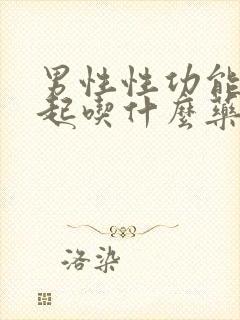 男性性功能
起喫什麼藥
洛染